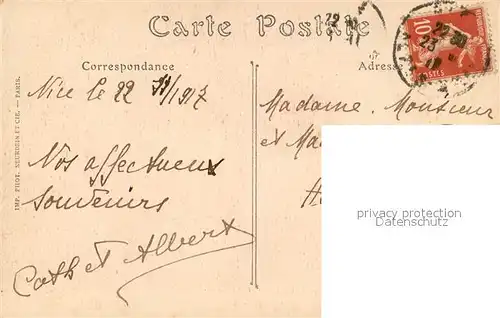 Carte Postale
Correspondance
Adresse
10
POSTES
Nice le 22 1917
Nos affectueux
souvenirs
Cath et Albert
Madame, Monsieur
et Ma
IMP. PHOT. NEURDEIN ET CIE. - PARIS.
privacy protection
Datenschutz